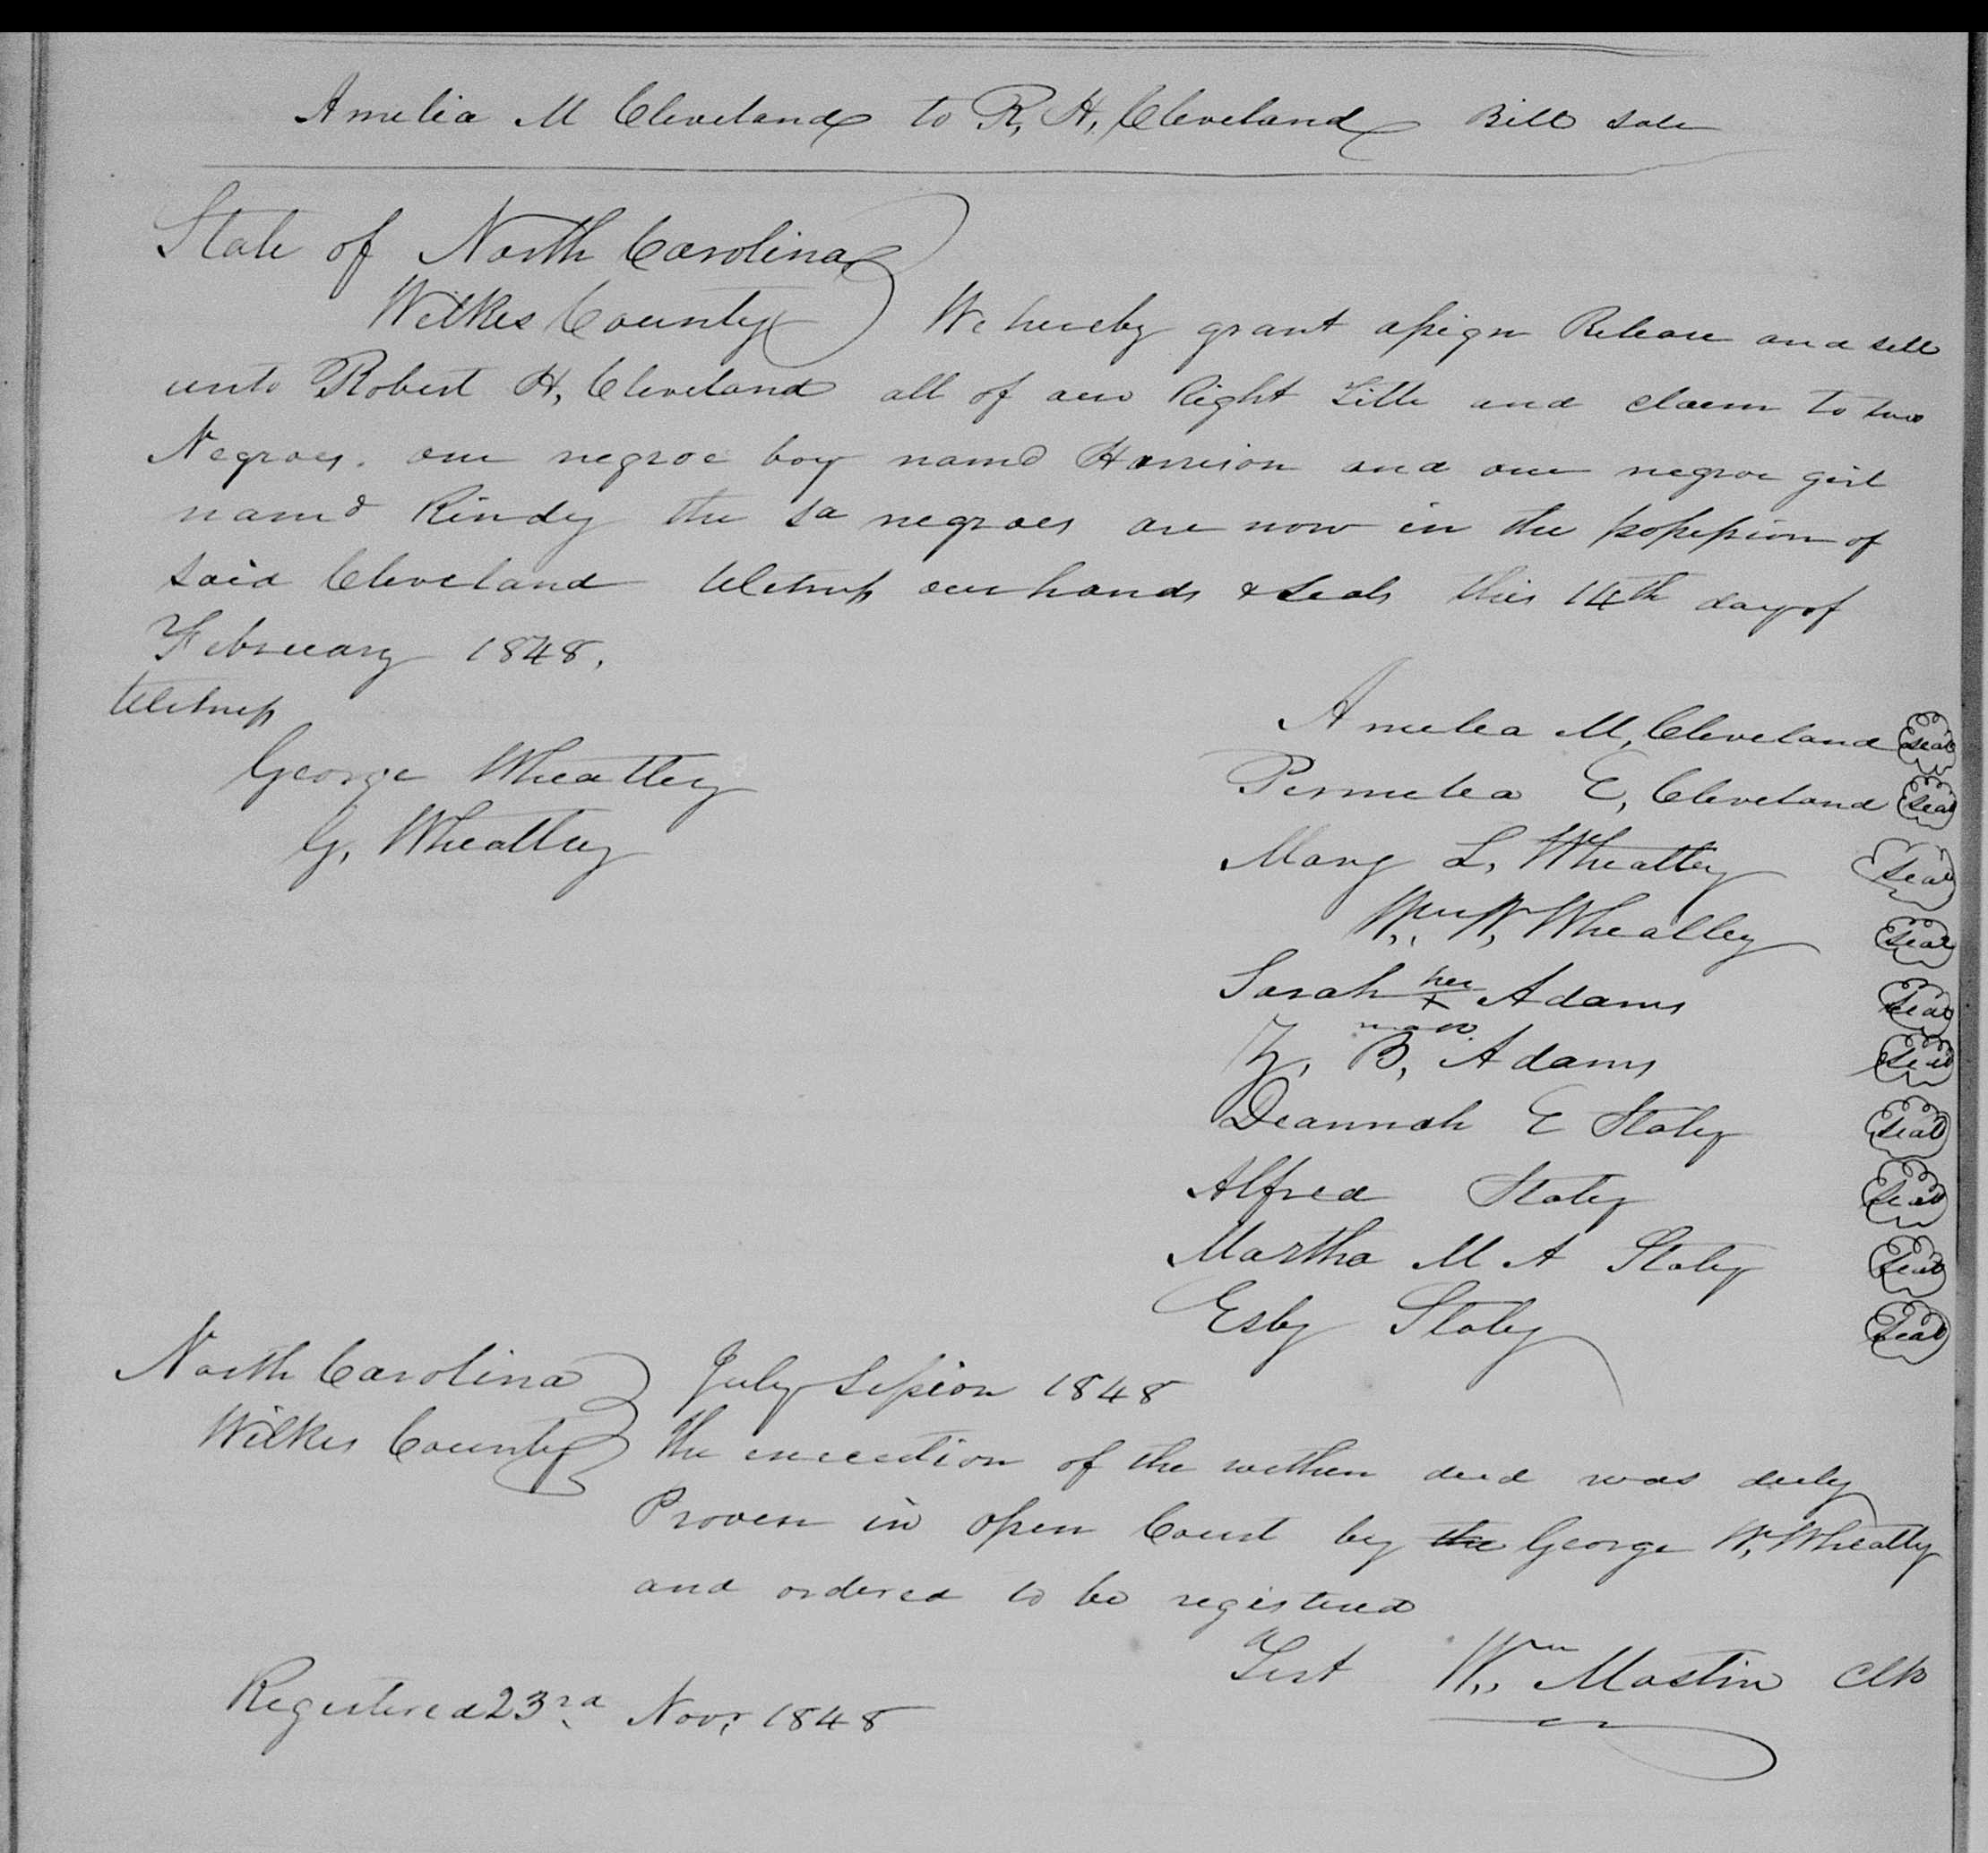 Amelia M Cleveland to R, H, Cleveland Bill Sale
State of North Carolina
Wilkes County We hereby grant assign Release and sell
unto Robert H, Cleveland all of our Right Title and claim to two
Negroes. one negroe boy namd Harrison and one negroe girl
namd Rindy the sd negroes are now in the possession of
said Cleveland Witness our hands & seals this 14th day of
February 1848,
Witness
Amelea M, Cleveland seal
George Wheatley
Permelea E, Cleveland seal
G, Wheatley
Mary L, Wheatley seal
Wm W, Wheatley seal
Sarah her x mark Adams seal
B, Adams seal
Deannah E Staley seal
Alfred Staley seal
Martha M A Staley seal
Esby Staley seal
North Carolina July Session 1848
Wilkes County The execution of the within deed was duly
Proven in open Court by the George W, Wheatly
and ordered to be registered
Test Wm Mastin Clk
Registered 23rd Novr 1848